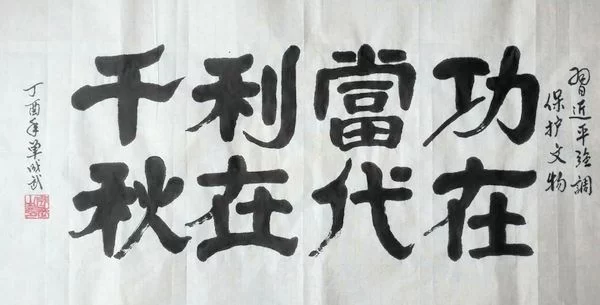 習近平強調
保护文物
功在
當代
利在
千秋
丁酉年单成武